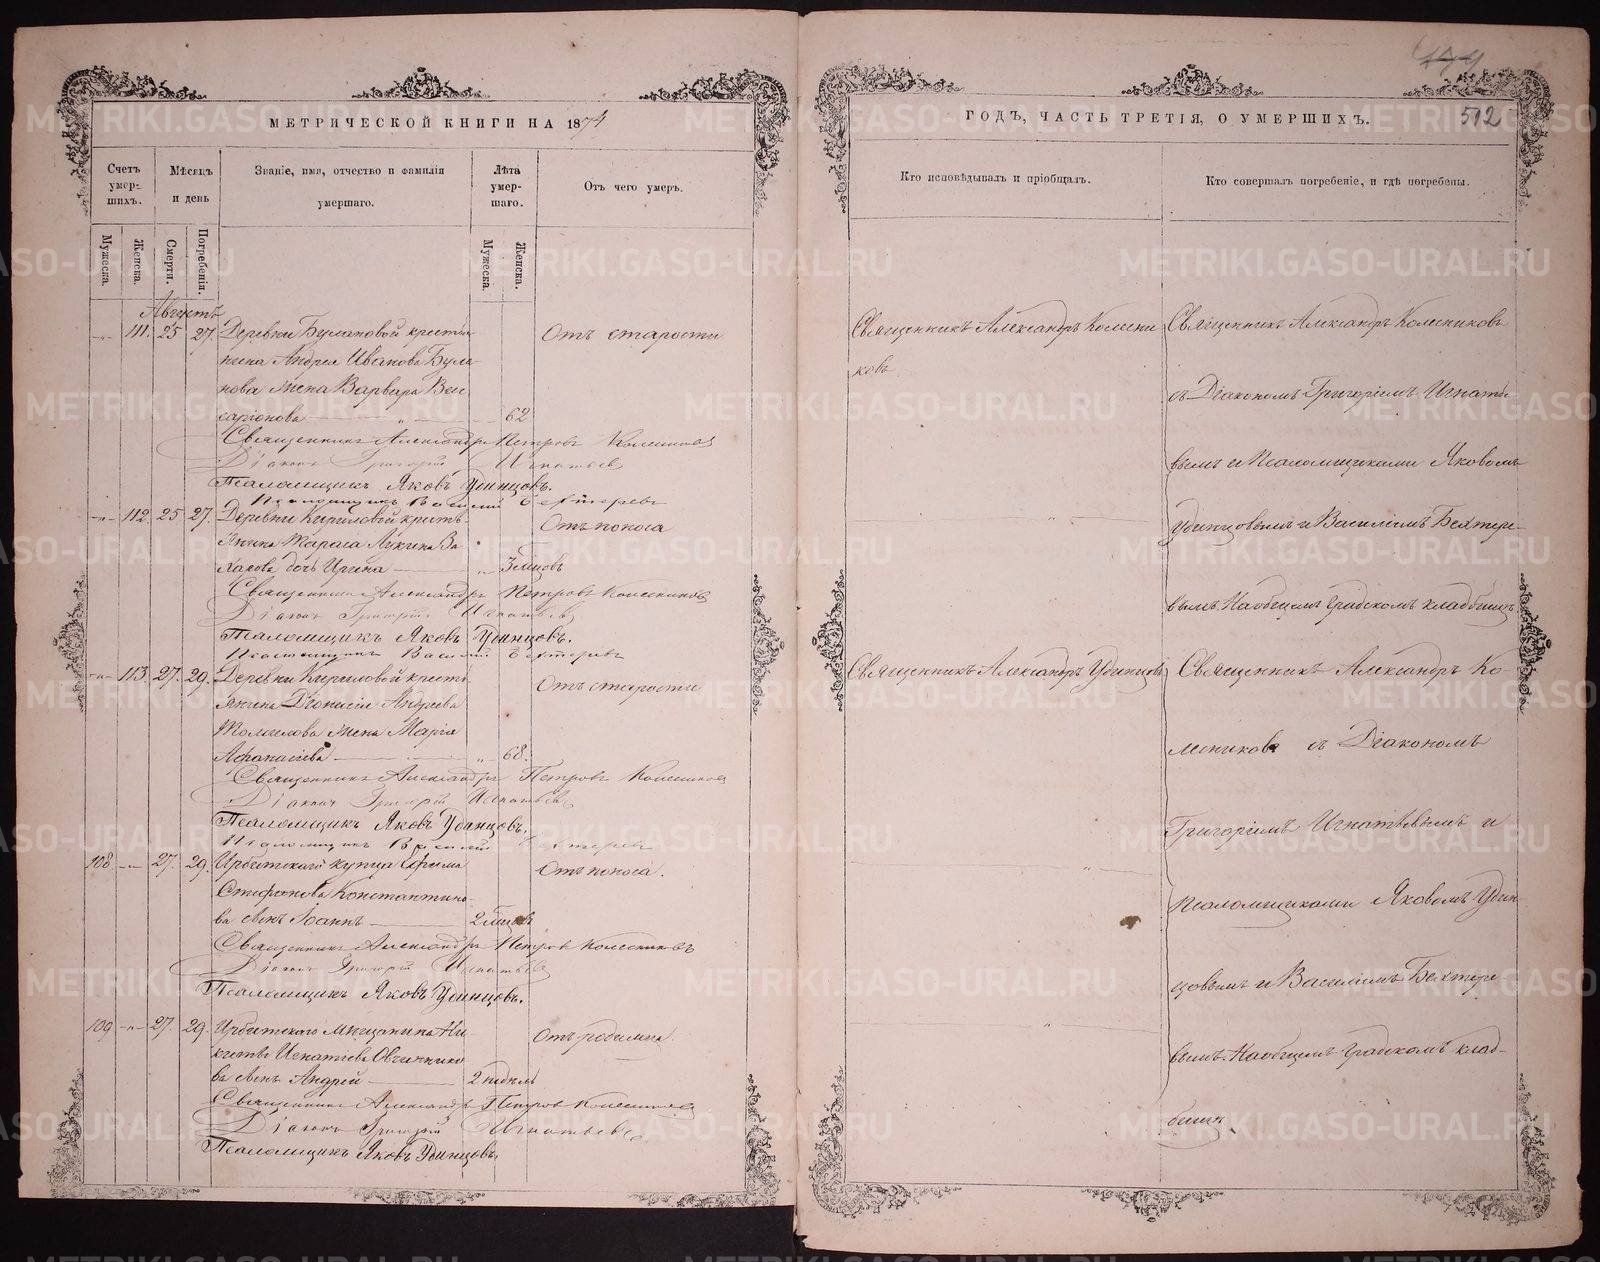 МЕТРИЧЕСКОЙ КНИГИ НА 1874
Счетъ умер- шихъ.
Мѣсяцъ и день
Званіе, имя, отчество и фамилія умершаго.
Лѣта умер- шаго.
Отъ чего умеръ.
Мужеска.
Женска.
Смерти.
Погребенія.
Мужеска.
Женска.
Августъ
111. 25 27. Деревни Булановой кресть
янина Андрея Иванова Була-
нова жена Варвара Вис
саріонова — „ — 62
Отъ старости
Священникъ Александръ Петровъ Колесников
Діаконъ Григорій Игнатьев
Псаломщикъ Яковъ Удинцовъ.
Псаломщикъ Василій Бехтеревъ
112. 25 27. Деревни Кириловой кресть-
янина
дочь Ирина — „ 3 мѣсцовъ
Отъ поноса
Священникъ Александръ Петровъ Колесников
Діаконъ Григорій Игнатьев
Псаломщикъ Яковъ Удинцовъ.
Псаломщикъ Василій Бехтеревъ
113. 27. 29. Деревни Кириловой кресть
янина Діонисія Андреева
жена Марія
Афанасіева — „ 68.
Отъ старости
Священникъ Александръ Петровъ Колесников
Діаконъ Григорій Игнатьев
Псаломщикъ Яковъ Удинцовъ.
Псаломщикъ Василій Бехтеревъ
108. 27. 29. Ирбитскаго купца Ефима
Стефанова Константино
ва сынъ Іоаннъ — 2 мѣсцов
Отъ поноса.
Священникъ Александръ Петров Колесниковъ
Діаконъ Григорій Игнатьев
Псаломщикъ Яковъ Удинцовъ.
109 27. 29. Ирбитскаго мѣщанина Ни
Игнатіева Овчиннико
ва сынъ Андрей — 2 недѣль
Отъ родимца.
Священникъ Александръ Петров Колесников
Діаконъ Григорій Игнатьев
Псаломщикъ Яковъ Удинцовъ.
ГОДЪ, ЧАСТЬ ТРЕТІЯ, О УМЕРШИХЪ.
512
Кто исповѣдывалъ и пріобщалъ.
Кто совершалъ погребеніе, и гдѣ погребены.
Священникъ Александръ Колесни
ковъ
Священникъ Александръ Колесниковъ
съ Діакономъ Григоріемъ Игнатье
вымъ и Псаломщиками Яковомъ
Удинцовымъ и Василіемъ Бехтере-
вымъ. На общемъ градскомъ кладбищѣ.
Священникъ Александръ Удинцовъ
Священникъ Александръ Ко-
лесниковъ съ Діакономъ
Григоріемъ Игнатьевымъ и
псаломщиками Яковомъ Удин-
цовымъ и Василіемъ Бехтере
вымъ. На общемъ градскомъ клад-
бищѣ.
METRIKI.GASO-URAL.RU